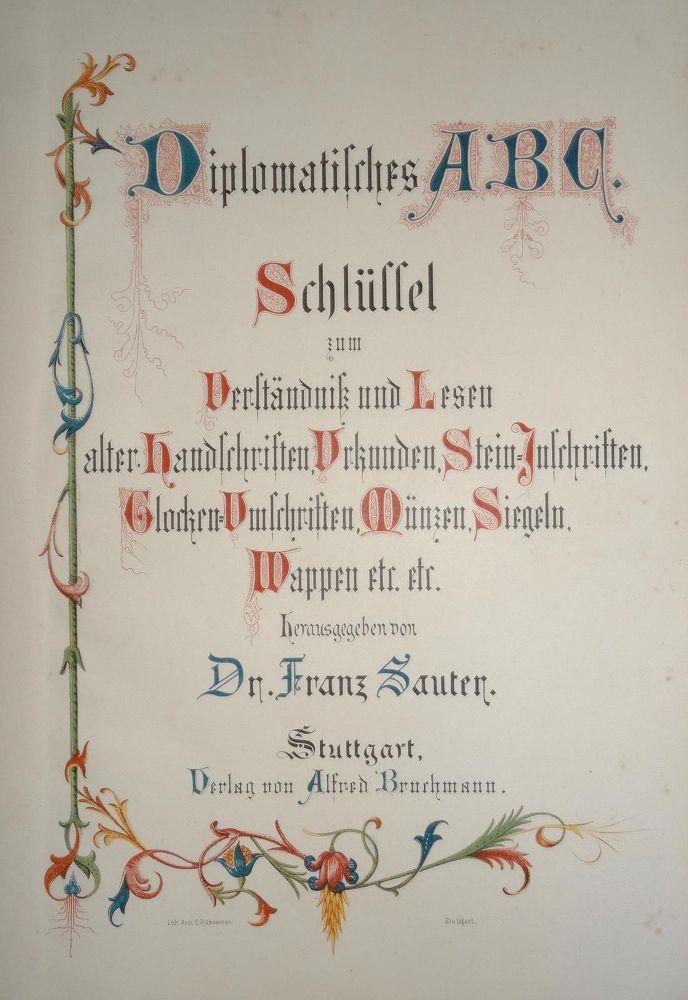 Diplomatiſches ABC.
Schlüſſel
zum
Verſtändniß und Leſen
alter Handſchriften, Urkunden, Stein=Inſchriften,
Glocken=Umſchriften, Münzen, Siegeln,
Wappen etc. etc.
herausgegeben von
Dr. Franz Sauter.
Stuttgart,
Verlag von Alfred Bruckmann.
Lith. Anst. Stuttgart.